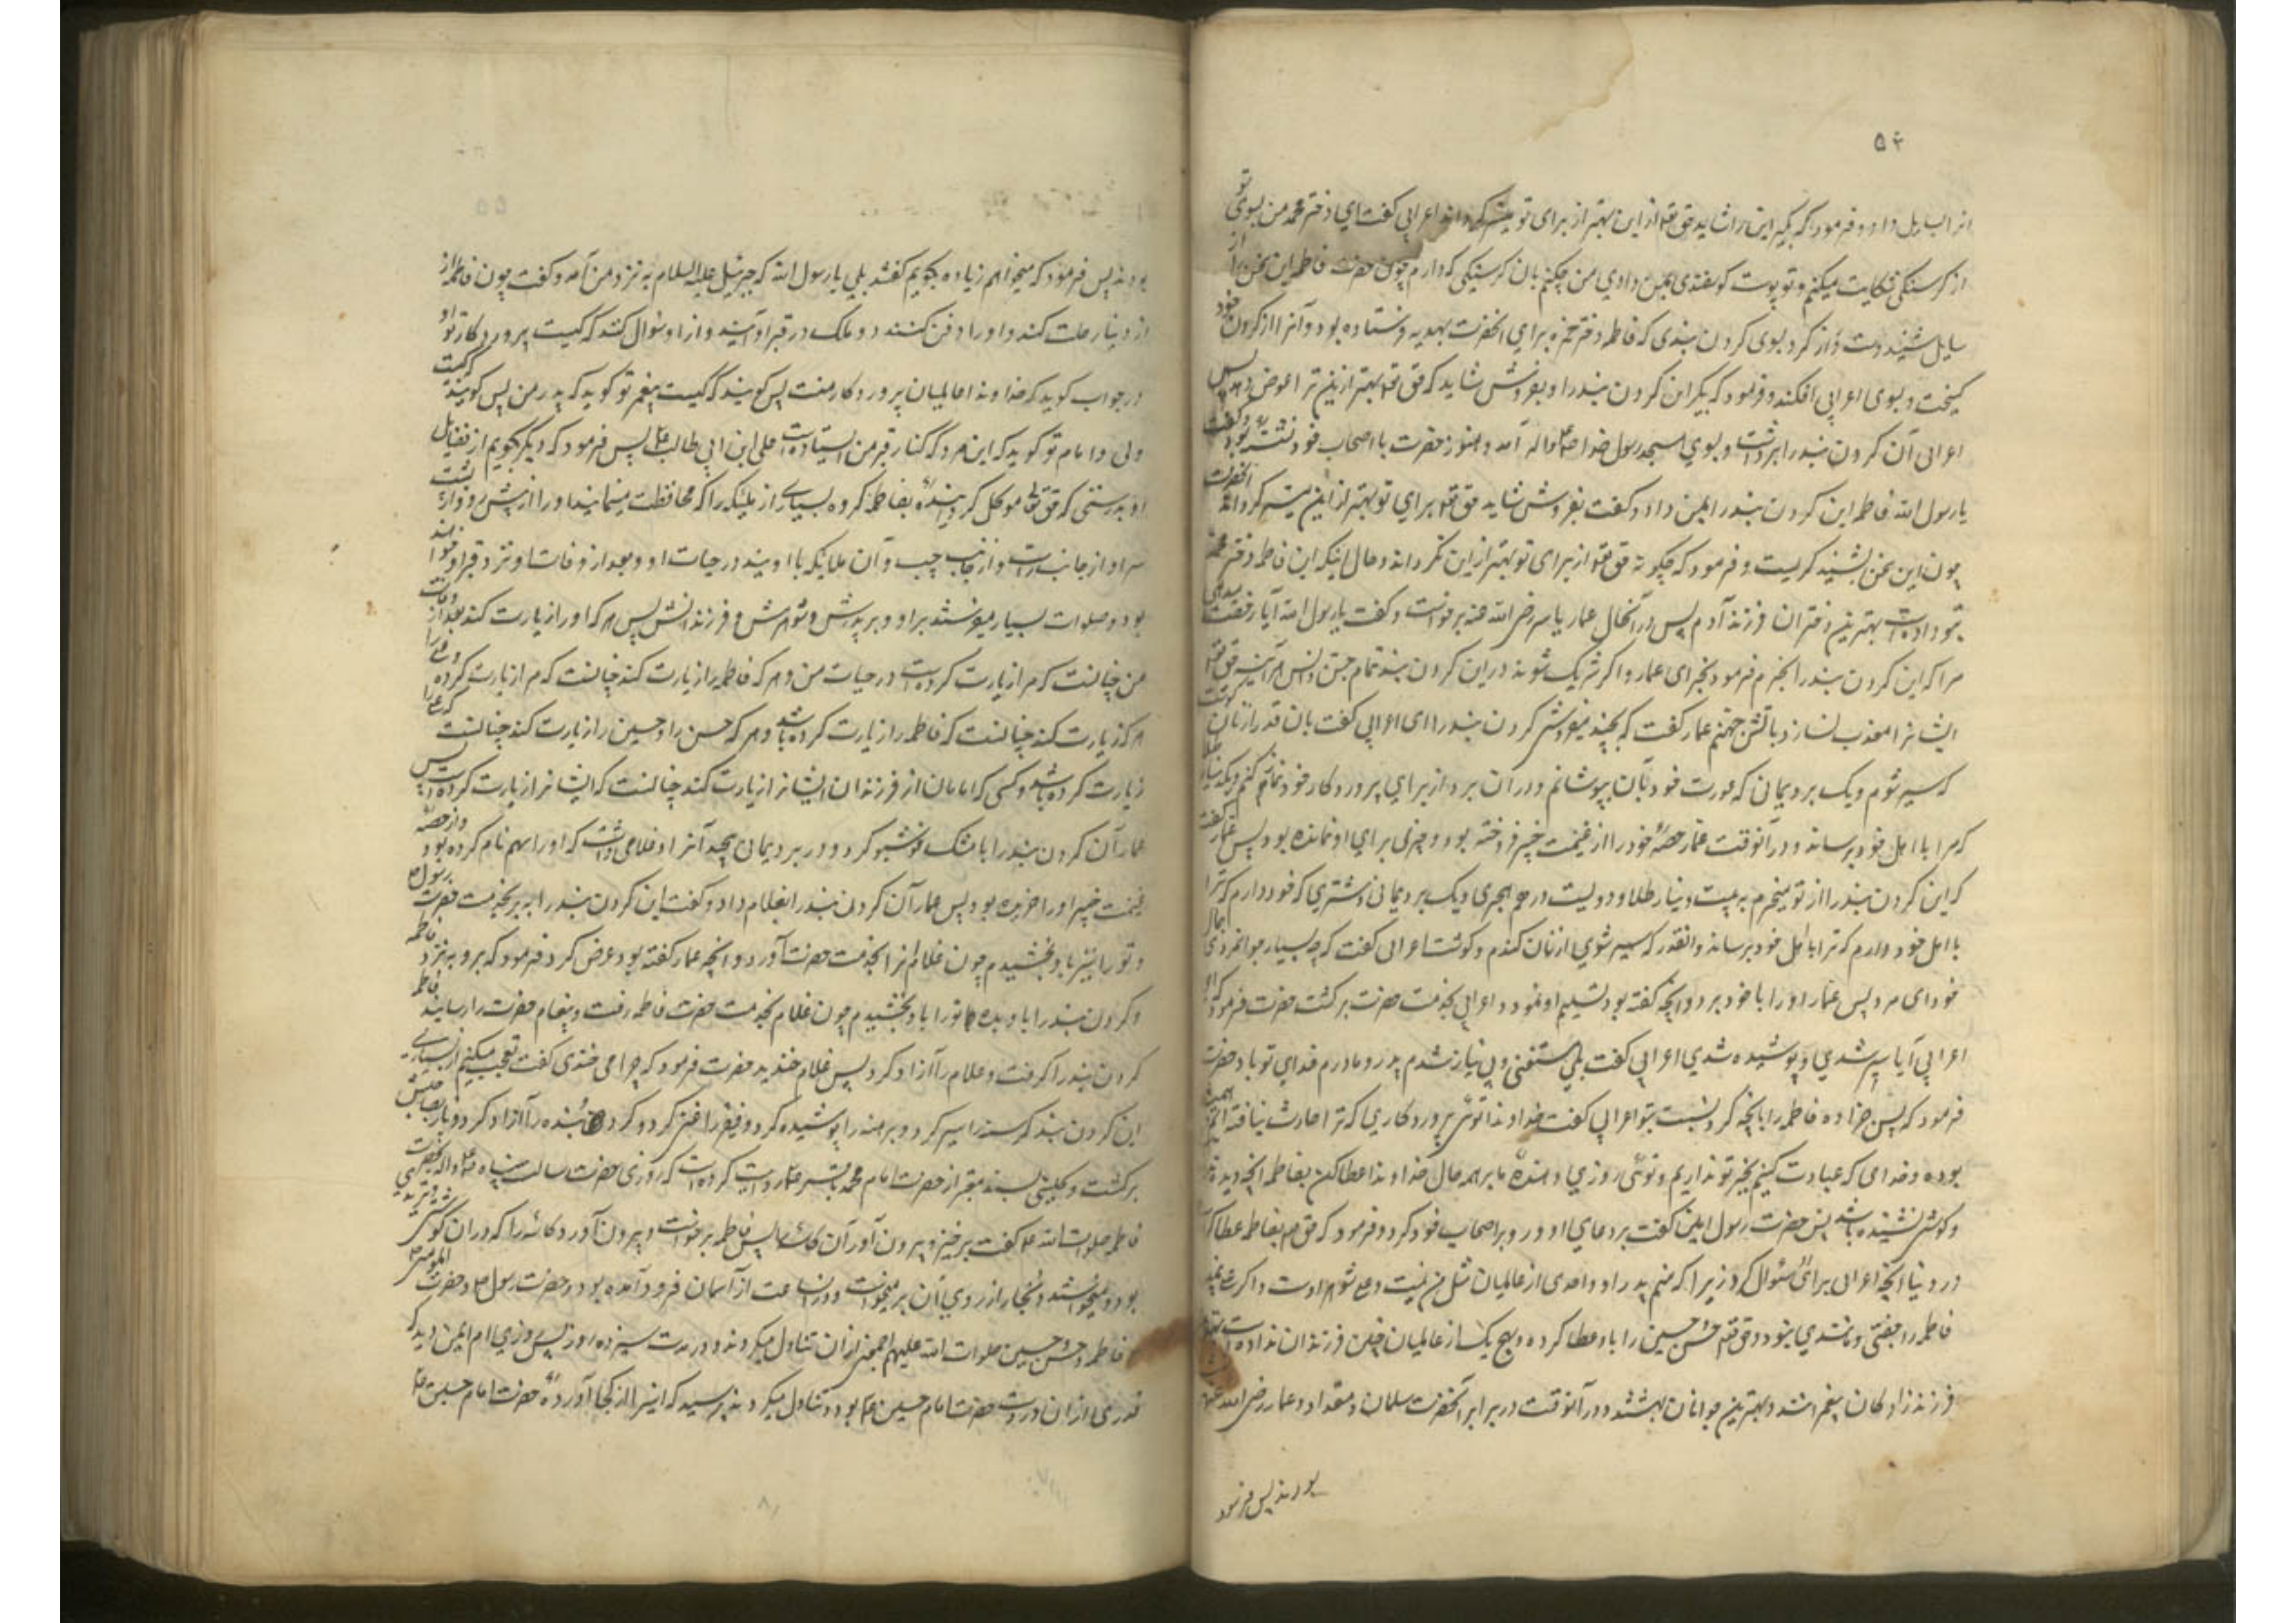 ۵۴
انرا بسایل داد و فرمود که بگیر این را شاید حق تعا ازین بهتر از برای تو میسر کرداند اعرابی کفت ای دختر محمد من بسوی تو
از کرسنکی شکایت میکنم و تو پوست کوسفندی بمن دادی من چکنم بان کرسنکی که دارم چون حضرت فاطمه این سخن از
سایل شنید دست دراز کرد بسوی کردن بندی که فاطمه دختر حمزه برای انحضرت بهدیه فرستاده بود و آنرا از کردن خود
کسیخت و بسوی اعرابی افکند و فرمود که بگیر این کردن بند را و بفروش شاید که حق تعا بهتر ازین ترا عوض دهد پس
اعرابی آن کردن بند را برداشت و بسوی مسجد رسول خدا صلعم و اله آمد و هنوز حضرت با اصحاب خود نشسته بود و کفت
یا رسول الله فاطمه این کردن بند را بمن داد و کفت بفروش شاید حق تعا برای تو بهتر از این میسر کرداند انحضرت
چون این سخن بشنید کریست و فرمود که چکونه حق تعا از برای تو بهتر از این نکرداند و حال اینکه این فاطمه دختر محمد
بتو داده است بهترین دختران فرزند آدم پس در آنحال عمار یاسر رضی الله عنه برخواست و کفت یا رسول الله آیا رخصت میدهی
مرا که این کردن بند را بخرم فرمود بخر ای عمار و اکر شریک شوند در این کردن بند تمام جن و انس هر آینه حق تعا
ایشانرا معذب نسازد باتش جهنم عمار کفت که بچند میفروشی کردن بند را ای اعرابی کفت بان قدر از نان و کوشت
که سیر شوم و یک برد یمانی که عورت خود بآن بپوشانم و در آن برد از برای پروردکار خود نماز کنم و یک دینار طلا
که مرا با اهل خود برساند و در آنوقت عمار حصهٔ خود را از غنیمت خیبر فروخته بود و چیزی برای او نمانده بود پس عمار کفت
که این کردن بند را از تو میخرم به بیست دینار طلا و دویست درهم هجری و یک برد یمانی و شتری که خود دارم که ترا
با اهل خود دارم که ترا با اهل خود برساند و انقدر که سیر شوی از نان کندم و کوشت اعرابی کفت که چه بسیار جوانمردی بمال
خود ای مرد پس عمار او را با خود برد و انچه کفته بود تسلیم او نمود و اعرابی بخدمت حضرت برکشت حضرت فرمود که ای
اعرابی آیا سیر شدی و پوشیده شدی اعرابی کفت بلی مستغنی و بی نیاز شدم پدر و مادرم فدای تو باد حضرت
فرمود که پس جزا ده فاطمه را بانچه کرد نسبت بتو اعرابی کفت خداوندا توئی پروردکاری که ترا حادث نیافته ایم همیشه
بوده و خدای که عبادت کنیم بغیر تو نداریم و توئی روزی دهندهٔ ما بر همه حال خداوندا عطا کن بفاطمه انچه دیده
و کوش نشنیده باشد پس حضرت رسول امین کفت بر دعای او و رو بر اصحاب خود کرد و فرمود که حق تعا بفاطمه عطا کرد
در دنیا انچه اعرابی برای او سئوال کرد زیرا که منم پدر او و احدی از عالمیان مثل من نیست و علی شوهر اوست و اکر علی نبود
فاطمه را جفتی و مانندی نبود و حق تعا حسن و حسین را باو عطا کرده و هیچ یک از عالمیان چنین فرزندان نداده است
فرزند زادکان پیغمبرانند و بهترین جوانان بهشتند و در آنوقت در برابر آنحضرت سلمان و مقداد و عمار رضی الله عنهم
بودند پس فرمود
بودند پس فرمود که میخواهم زیاده بکویم کفتند بلی یا رسول الله که جبرئیل علیه السلام به نزد من آمد و کفت چون فاطمه از
از دنیا رحلت کند و او را دفن کنند دو ملک در قبر او آیند و از او سئوال کنند که کیست پروردکار تو او
در جواب کوید که خداوند عالمیان پروردکار منست پس کویند که کیست پیغمبر تو کوید که پدر من پس کویند که کیست
ولی و امام تو کوید که این مرد که کنار قبر من ایستاده است علی ابن ابی طالب پس فرمود که دیکر بکویم از فضایل
او بدرستی که حق تعا موکل کردانیده بفاطمه کروه بسیاری از ملئیکه را که محافظت مینمایند او را از پیش رو و از پشت
سر او از جانب راست و از جانب چپ و آن ملایکه با اویند در حیات او و بعد از وفات او نزد قبر او خواهند
بود و صلوات بسیار میفرستند بر او و بر پدرش و شوهرش و فرزندانش پس هر که او را زیارت کند بعد از وفات
من چنانست که مرا زیارت کرده است در حیات من و هر که فاطمه را زیارت کند چنانست که مرا زیارت کرده و علی را
هر که زیارت کند چنانست که فاطمه را زیارت کرده باشد و هر که حسن را و حسین را زیارت کند چنانست که علی را
زیارت کرده باشد و کسی که امامان از فرزندان ایشانرا زیارت کند چنانست که ایشانرا زیارت کرده است پس
عمار آن کردن بند را با مشک خوشبو کرد و در برد یمانی پیچید آنرا و غلامی داشت که او را سهم نام کرده بود و از حصهٔ
غنیمت خیبر او را خریده بود پس عمار آن کردن بند را بغلام داد و کفت این کردن بند را ببر بخدمت حضرت رسول ص
و تو را نیز باو بخشیدم چون غلام انرا بخدمت حضرت آورد و انچه عمار کفته بود عرض کرد فرمود که برو به نزد فاطمه
و کردن بند را باو بده ما تو را باو بخشیدم چون غلام بخدمت حضرت فاطمه رفت و پیغام حضرت را رسانید فاطمه
کردن بند را کرفت و غلام را آزاد کرد پس غلام خندید حضرت فرمود که چرا می خندی کفت تعجب میکنم از بسیاری
این کردن بند کرسنه را سیر کرد و برهنه را پوشیده کرد و فقیر را غنی کرد و بنده را آزاد کرد و باز بصاحبش
برکشت و کلینی بسند معتبر از حضرت امام محمد باقر ع روایت کرده است که روزی حضرت رسالت پناه صلعم و اله بحضرت
فاطمه صلوات الله علیها کفت برخیز و بیرون آور آن کاسه را پس فاطمه برخواست و بیرون آورد کاسه را که در ان کوشت
بود و میجوشید و بخار از روی آن برمیخواست و در انساعت از آسمان فرود آمده بود و حضرت رسول ص و حضرت امیرالمومنین
و فاطمه و حسن و حسین صلوات الله علیهم اجمعین از ان تناول میکردند و در مدت سیزده روز پس روزی ام ایمن دید که
قدری از ان در دست حضرت امام حسین ع بود و تناول میکرد پرسید که اینرا از کجا آورده حضرت امام حسین ع